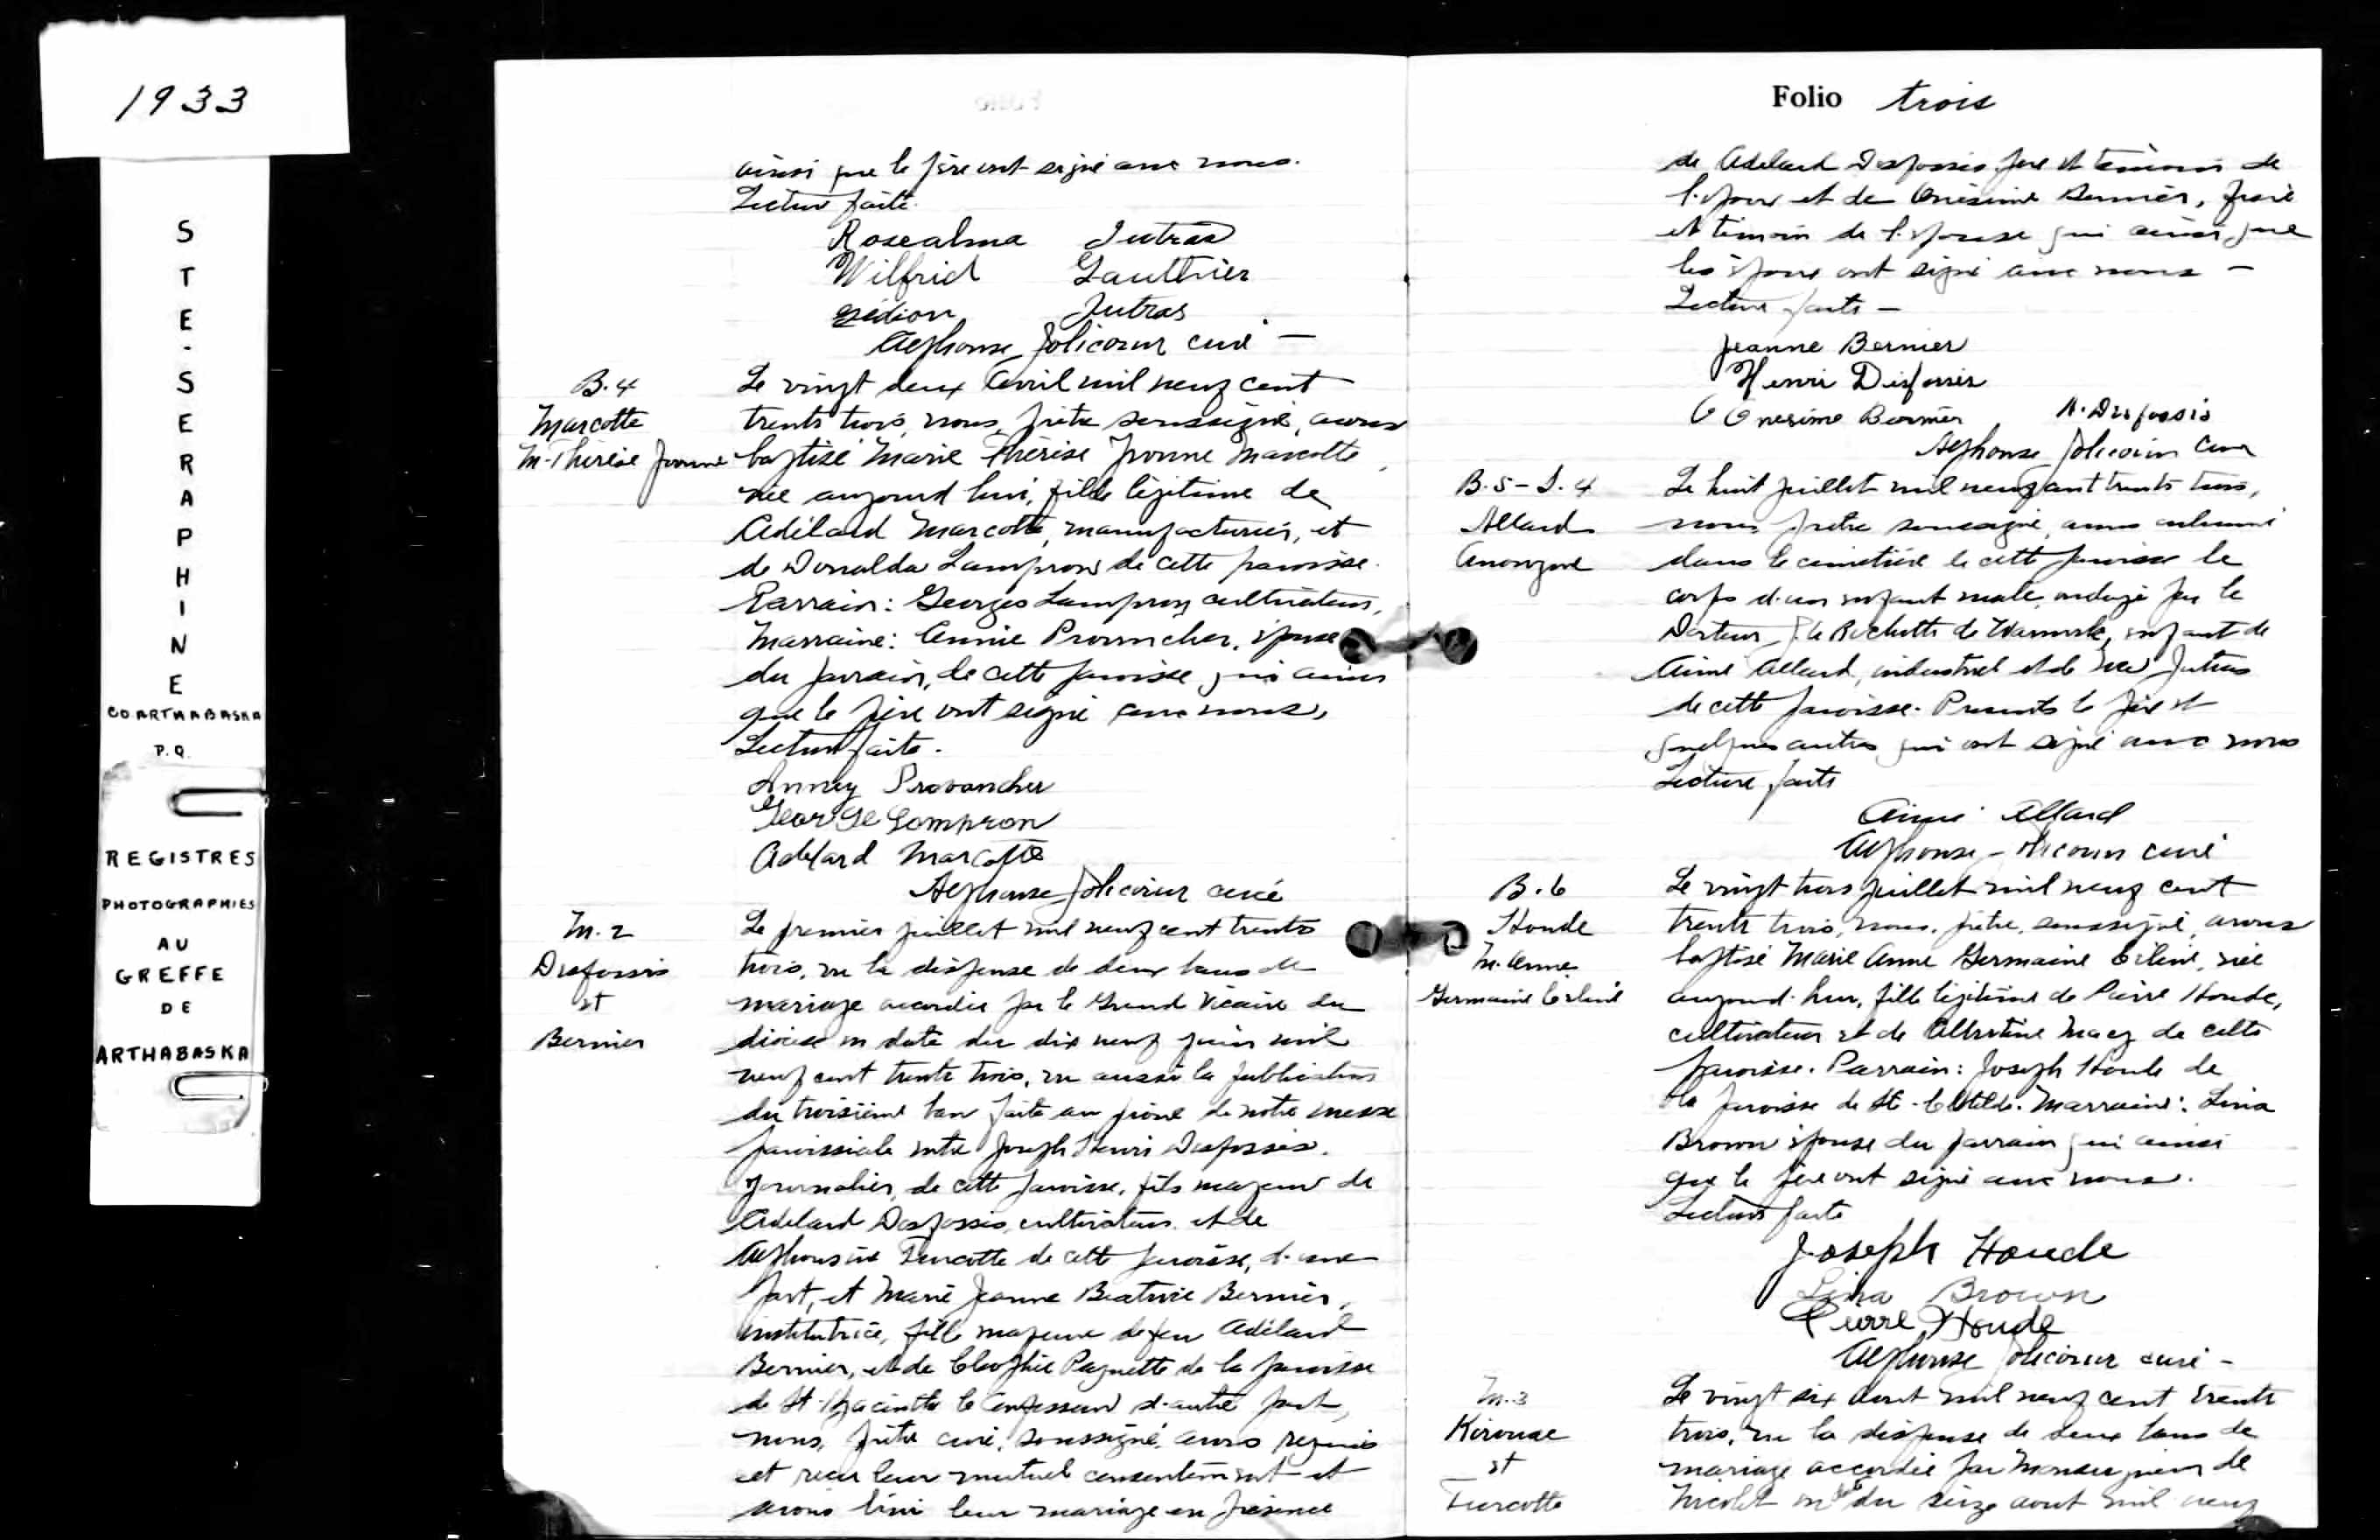 1933
STE-SERAPHINE
CO ARTHABASKA
P.Q.
REGISTRES
PHOTOGRAPHIES
AU
GREFFE
DE
ARTHABASKA
ainsi que le père ont signé avec nous.
Lecture faite.
Rosealma Jutras
Wilfrid Gauthier
Gédéon Jutras
Alphonse Jolicoeur curé —
B. 4
Marcotte
M-Thérèse Yvonne
Le vingt deux Avril mil neuf cent
trente trois, nous, prêtre soussigné, avons
baptisé Marie Thérèse Yvonne Marcotte,
née aujourd'hui, fille légitime de
Adélard Marcotte, manufacturier, et
de Donalda Lampron de cette paroisse.
Parrain: Georges Lampron cultivateur,
Marraine: Annie Provencher, épouse
du parrain, de cette paroisse qui ainsi
que le père ont signé avec nous,
Lecture faite.
Anney Provancher
George Lompron
Adelard Marcotte
Alphonse Jolicoeur curé
M. 2
Desfossés
et
Bernier
Le premier juillet mil neuf cent trente
trois, vu la dispense de deux bans de
mariage accordée par le Grand Vicaire du
diocèse en date du dix neuf juin mil
neuf cent trente trois, vu aussi la publication
du troisième ban faite au prône de notre messe
paroissiale entre Joseph Henri Desfossés,
journalier, de cette paroisse, fils majeur de
Adelard Desfossés cultivateur et de
Alphonsine Turcotte de cette paroisse, d'une
part, et Marie Jeanne Beatrice Bernier,
institutrice, fille majeure de feu Adélard
Bernier, et de Cléophée Paquette de la paroisse
de St-Hyacinthe le Confesseur d'autre part,
nous, prêtre curé, soussigné, avons requis
et reçu leur mutuel consentement et
avons béni leur mariage en présence
Folio trois
de Adelard Desfossés père et témoin de
l'époux et de Onésime Bernier, frère
et témoin de l'épouse qui ainsi que
les époux ont signé avec nous —
Lecture faite —
Jeanne Bernier
Henri Desfossés
Onesime Bernier A. Desfossés
Alphonse Jolicoeur curé
B. 5 - S. 4
Allard
Anonyme
Le huit juillet mil neuf cent trente trois,
nous prêtre soussigné, avons inhumé
dans le cimetière de cette paroisse le
corps d'un enfant mâle, ondoyé par le
Docteur Rochette de Warwick, enfant de
Aimé Allard, industriel et de Jutras
de cette paroisse. Présents le père et
quelques autres qui ont signé avec nous
Lecture faite
Aimé Allard
Alphonse Jolicoeur curé
B. 6
Houde
M. Anne
Germaine Céline
Le vingt trois juillet mil neuf cent
trente trois, nous, prêtre, soussigné, avons
baptisé Marie Anne Germaine Céline, née
aujourd'hui, fille légitime de Pierre Houde,
cultivateur et de Albertine de cette
paroisse. Parrain: Joseph Houde de
la paroisse de Ste-Clotilde. Marraine: Lina
Brown épouse du parrain qui ainsi
que le père ont signé avec nous.
Lecture faite
Joseph Houde
Lina Brown
Pierre Houde
Alphonse Jolicoeur curé -
M. 3
Kirouac
et
Turcotte
Le vingt six août mil neuf cent trente
trois, vu la dispense de deux bans de
mariage accordée par Monseigneur de
Nicolet en date du seize août mil neuf